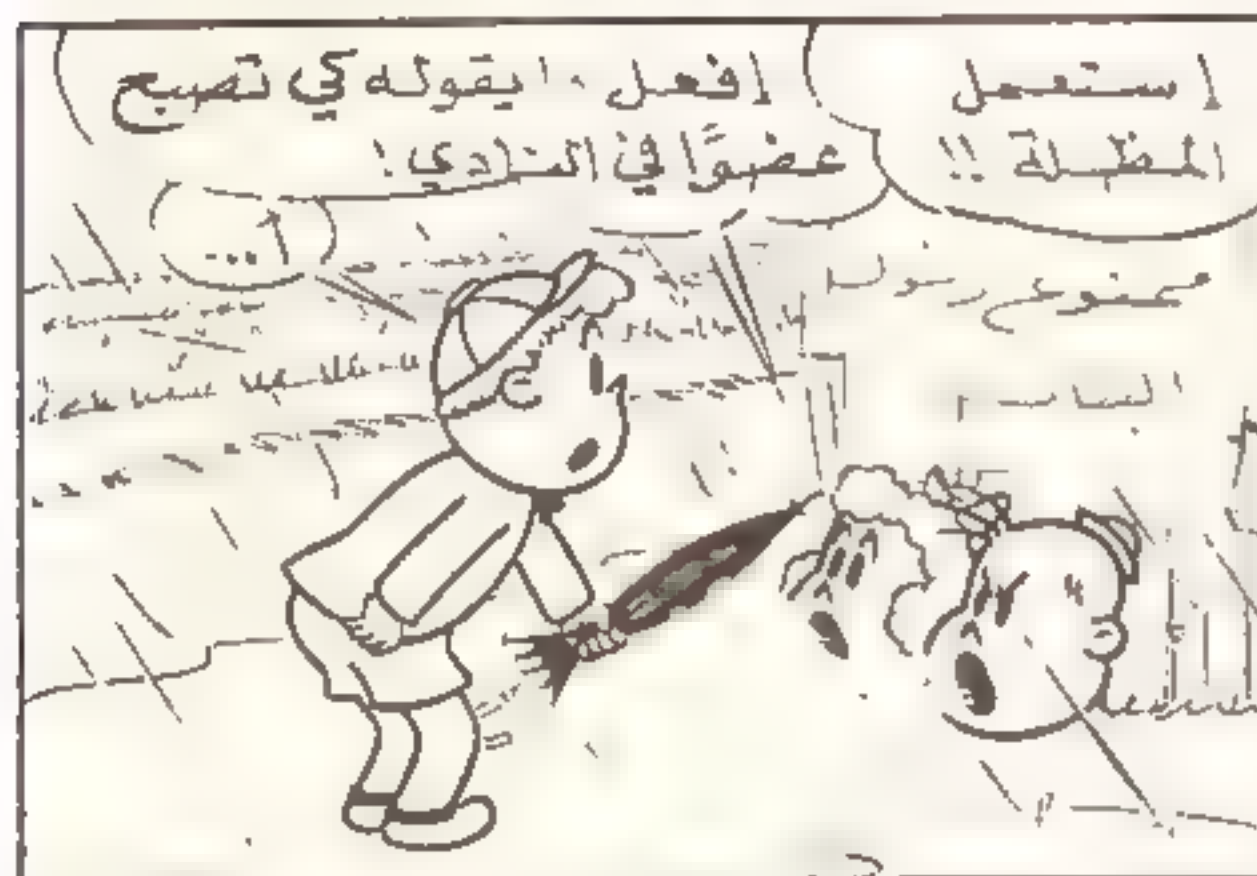 إستعمل
المظلة !!
إفعل ما يقوله كي تصبح
عضوًا في النادي !
أ...
ممنوع رسول